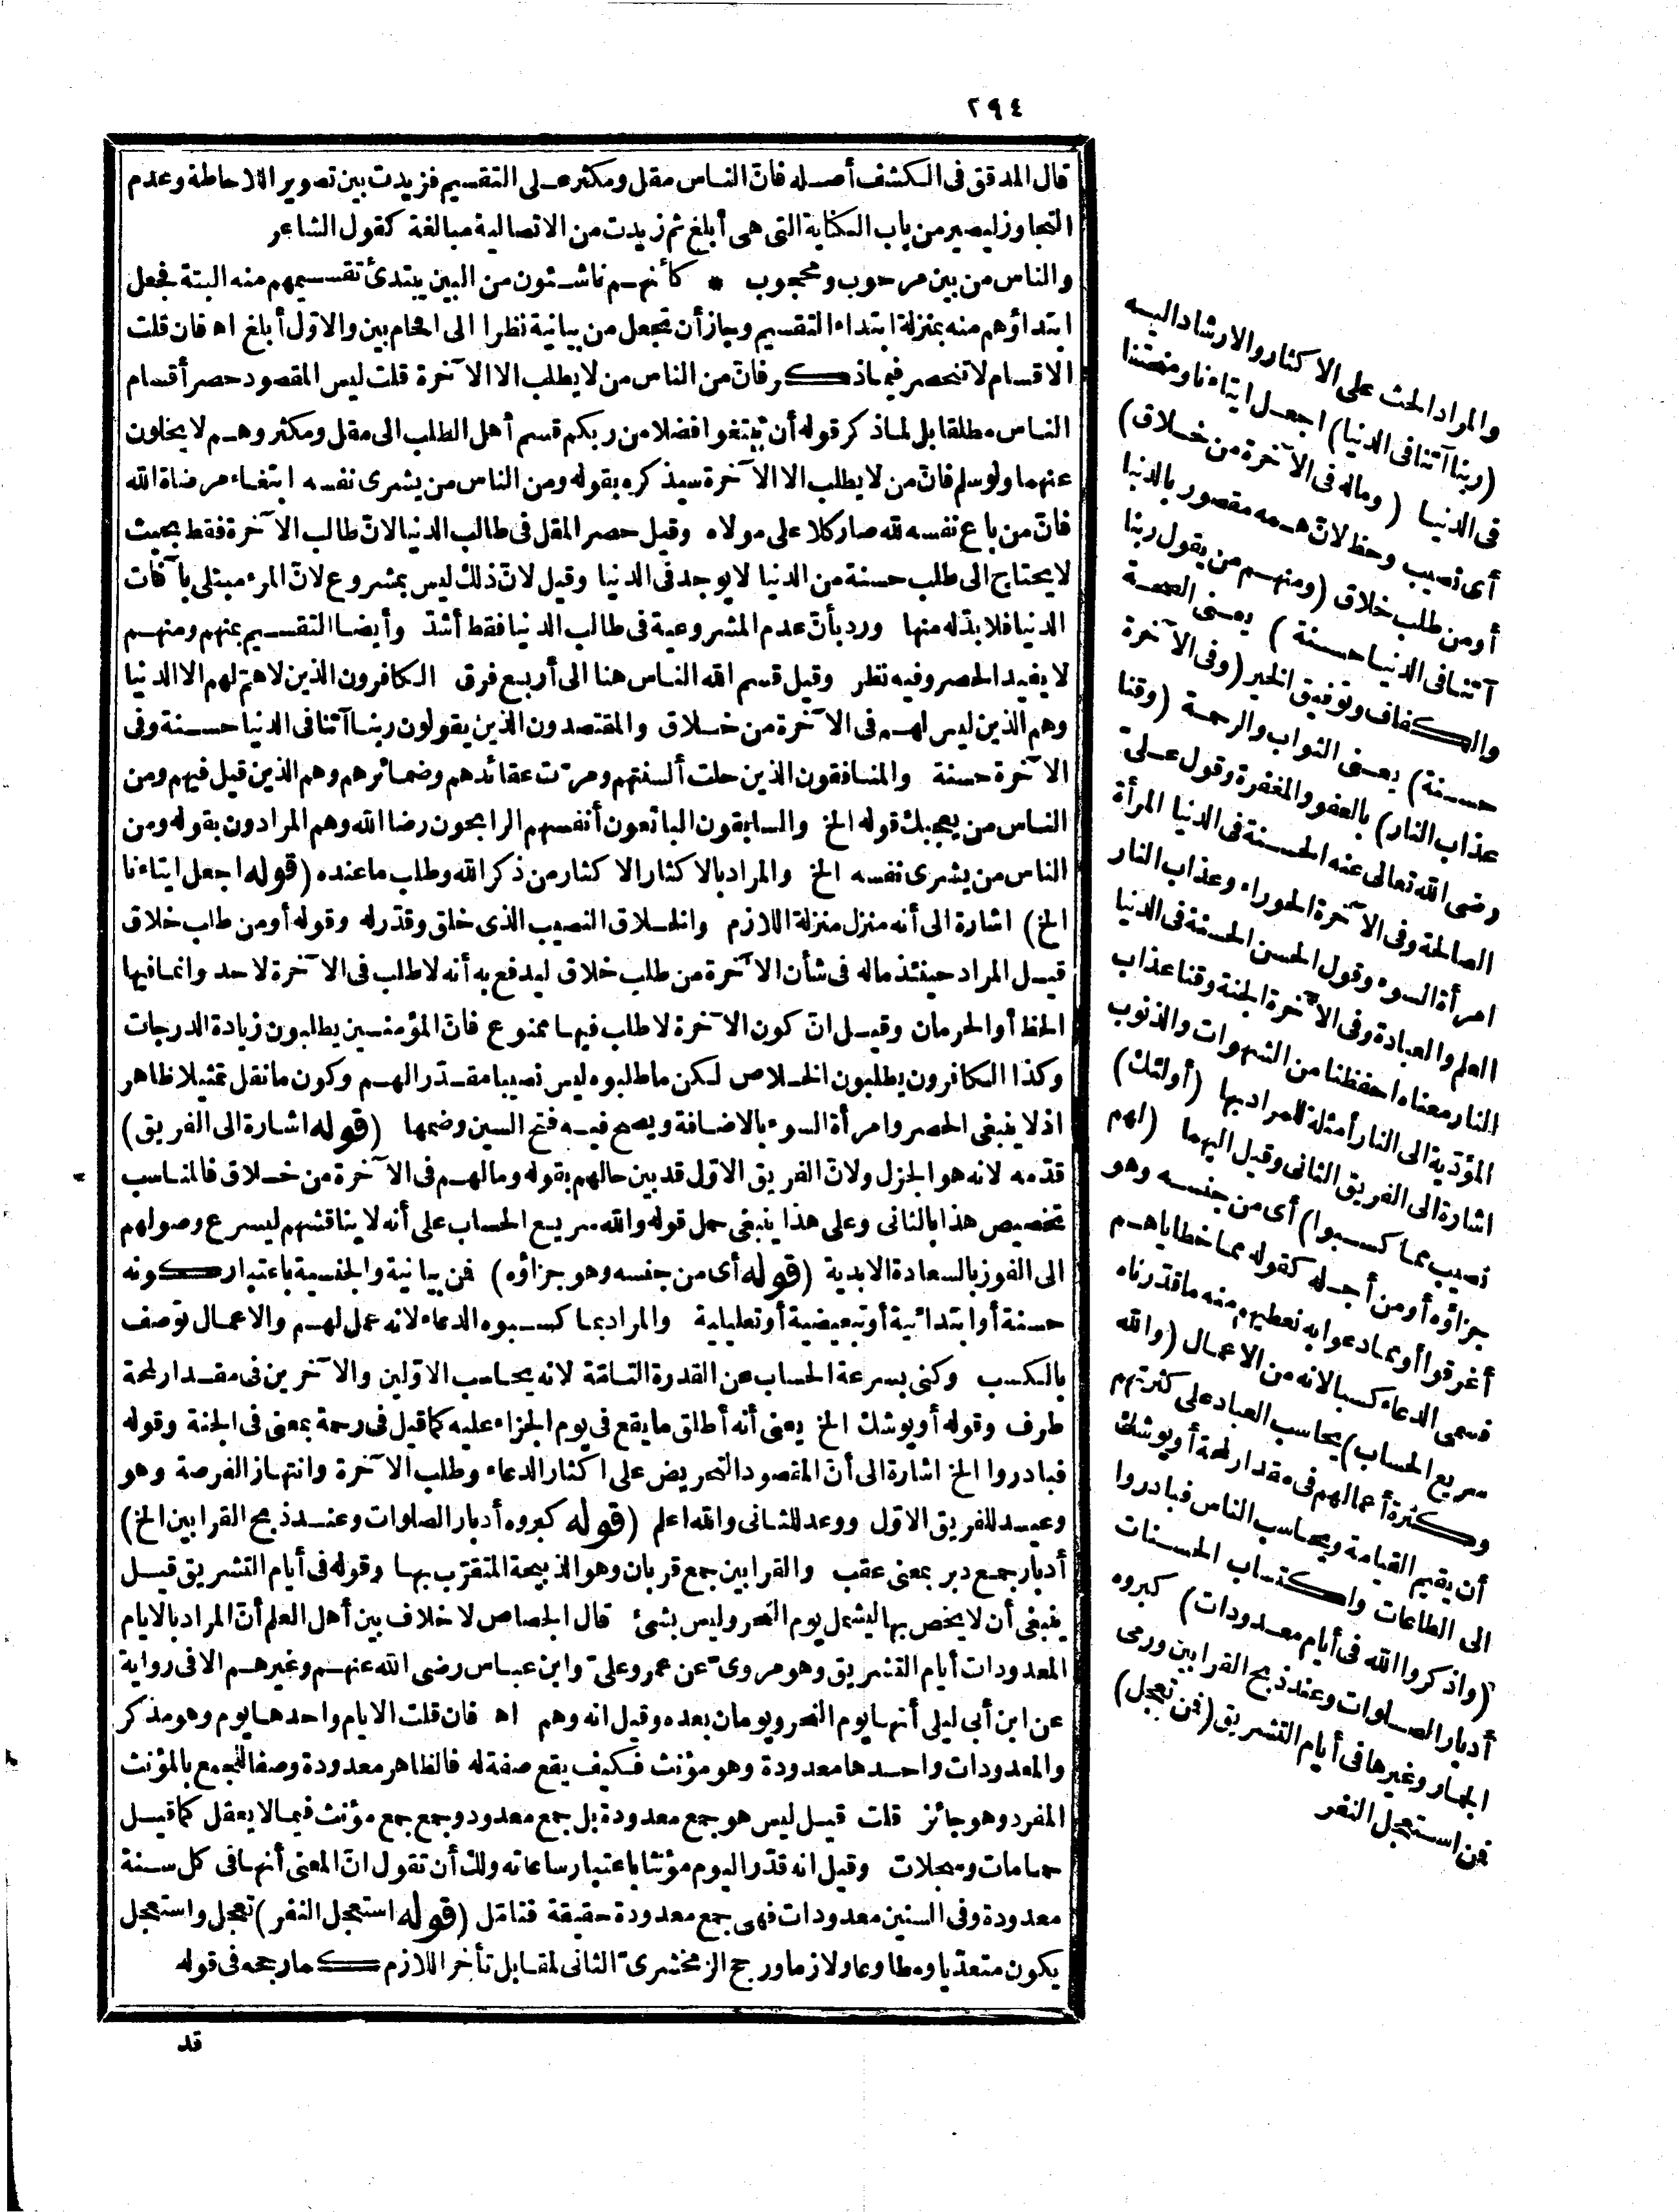 ٢٩٤
قال المدقق فى الكشف أصله فانّ الناس مقل ومكثر على التقسيم فزيدت بين تصوير الاحاطة وعدم
التجاوز ليصير من باب الكناية التى هى أبلغ ثم زيدت من الاتصالية مبالغة كقول الشاعر
والناس من بين مرحوب ومحجوب * كأنهم ناشئون من البين يبتدئ تقسيمهم منه البتة فجعل
ابتداؤهم منه بمنزلة ابتداء التقسيم وجاز أن تجعل من بيانية نظرا الى اقحام بين والاوّل أبلغ اه فان قلت
الاقسام لا تنحصر فيما ذكر فانّ من الناس من لا يطلب الا الآخرة قلت ليس المقصود حصر أقسام
الناس مطلقا بل لما ذكر قوله أن تبتغوا فضلا من ربكم قسم أهل الطلب الى مقل ومكثر وهم لا يخلون
عنهما ولو سلم فانّ من لا يطلب الا الآخرة سيذكره بقوله ومن الناس من يشرى نفسه ابتغاء مرضاة الله
فانّ من باع نفسه لله صار كلا على مولاه وقيل حصر المقل فى طالب الدنيا لانّ طالب الآخرة فقط بحيث
لا يحتاج الى طلب حسنة من الدنيا لا يوجد فى الدنيا وقيل لانّ ذلك ليس بمشروع لانّ المرء مبتلى بآفات
الدنيا فلا بدّ له منها وردّ بأنّ عدم المشروعية فى طالب الدنيا فقط أشدّ وأيضا التقسيم بمنهم ومنهم
لا يفيد الحصر وفيه نظر وقيل قسم الله الناس هنا الى أربع فرق الكافرون الذين لا همّ لهم الا الدنيا
وهم الذين ليس لهم فى الآخرة من خلاق والمقتصدون الذين يقولون ربنا آتنا فى الدنيا حسنة وفى
الآخرة حسنة والمنافقون الذين حلت ألسنتهم ومرّت عقائدهم وضمائرهم وهم الذين قيل فيهم ومن
الناس من يعجبك قوله الخ والسابقون البائعون أنفسهم الرابحون رضا الله وهم المرادون بقوله ومن
الناس من يشرى نفسه الخ والمراد بالاكثار الاكثار من ذكر الله وطلب ما عنده (قوله اجعل ايتاءنا
الخ) اشارة الى أنه منزل منزلة اللازم والخلاق النصيب الذى خلق وقدّر له وقوله أو من طلب خلاق
قيل المراد حينئذ ماله فى شأن الآخرة من طلب خلاق ليدفع به أنه لا طلب فى الآخرة لاحد وانما فيها
الحظ أو الحرمان وقيل انّ كون الآخرة لا طلب فيها ممنوع فانّ المؤمنين يطلبون زيادة الدرجات
وكذا الكافرون يطلبون الخلاص لكن ما طلبوه ليس نصيبا مقدّرا لهم وكون ما نقل تمثيلا ظاهر
اذ لا ينبغى الحصر وامرأة السوء بالاضافة ويصح فيه فتح السين وضمها (قوله اشارة الى الفريق)
قدّمه لانه هو الجزل ولانّ الفريق الاوّل قد بين حالهم بقوله وما لهم فى الآخرة من خلاق فالمناسب
تخصيص هذا بالثانى وعلى هذا ينبغى حمل قوله والله سريع الحساب على أنه لا يناقشهم ليسرع وصولهم
الى الفوز بالسعادة الابدية (قوله أى من جنسه وهو جزاؤه) فمن بيانية والجنسية باعتبار كونه
حسنة أو ابتدائية أو تبعيضية أو تعليلية والمراد بما كسبوه الدعاء لانه عمل لهم والاعمال توصف
بالكسب وكنى بسرعة الحساب عن القدرة التامّة لانه يحاسب الاوّلين والآخرين فى مقدار لمحة
طرف وقوله أو يوشك الخ يعنى أنه أطلق ما يقع فى يوم الجزاء عليه كما قيل فى رحمة بمعنى فى الجنة وقوله
فبادروا الخ اشارة الى أنّ المقصود التحريض على اكثار الدعاء وطلب الآخرة وانتهاز الفرصة وهو
وعيد للفريق الاوّل ووعد للثانى والله اعلم (قوله كبروه أدبار الصلوات وعند ذبح القرابين الخ)
أدبار جمع دبر بمعنى عقب والقرابين جمع قربان وهو الذبيحة المتقرّب بها وقوله فى أيام التشريق قيل
ينبغى أن لا يخص بها ليشمل يوم النحر وليس بشئ قال الجصاص لا خلاف بين أهل العلم أنّ المراد بالايام
المعدودات أيام التشريق وهو مروىّ عن عمر وعلىّ وابن عباس رضى الله عنهم وغيرهم الا فى رواية
عن ابن أبى ليلى أنها يوم النحر ويومان بعده وقيل انه وهم اه فان قلت الايام واحدها يوم وهو مذكر
والمعدودات واحدها معدودة وهو مؤنث فكيف يقع صفة له فالظاهر معدودة وصفا للجمع بالمؤنث
المفرد وهو جائز قلت قيل ليس هو جمع معدودة بل جمع معدود وجمع جمع مؤنث فيما لا يعقل كما قيل
حمامات وسجلات وقيل انه قدّر اليوم مؤنثا باعتبار ساعاته ولك أن تقول انّ المعنى أنها فى كل سنة
معدودة وفى السنين معدودات فهى جمع معدودة حقيقة فتامّل (قوله استعجل النفر) تعجل واستعجل
يكون متعدّيا ومطاوعا ولازما ورجح الزمخشرىّ الثانى لمقابل تأخر اللازم كما رجحه فى قوله
قد
والمراد الحث على الاكثار والارشاد اليه
(ربنا آتنا فى الدنيا) اجعل ايتاءنا ومنحتنا
فى الدنيا (وماله فى الآخرة من خلاق)
أى نصيب وحظ لانّ همه مقصور بالدنيا
أو من طلب خلاق (ومنهم من يقول ربنا
آتنا فى الدنيا حسنة) يعنى الصحة
والكفاف وتوفيق الخير (وفى الآخرة
حسنة) يعنى الثواب والرحمة (وقنا
عذاب النار) بالعفو والمغفرة وقول علىّ
رضى الله تعالى عنه الحسنة فى الدنيا المرأة
الصالحة وفى الآخرة الحوراء وعذاب النار
امرأة السوء وقول الحسن الحسنة فى الدنيا
العلم والعبادة وفى الآخرة الجنة وقنا عذاب
النار معناه احفظنا من الشهوات والذنوب
المؤدّية الى النار أمثلة للمراد بها (أولئك)
اشارة الى الفريق الثانى وقيل اليهما (لهم
نصيب مما كسبوا) أى من جنسه وهو
جزاؤه أو من أجله كقوله مما خطاياهم
أغرقوا أو مما دعوا به نعطيهم منه ما قدّرناه
فسمى الدعاء كسبا لانه من الاعمال (والله
سريع الحساب) يحاسب العباد على كثرتهم
وكثرة أعمالهم فى مقدار لمحة أو يوشك
أن يقيم القيامة ويحاسب الناس فبادروا
الى الطاعات واكتساب الحسنات
(واذكروا الله فى أيام معدودات) كبروه
أدبار الصلوات وعند ذبح القرابين ورمى
الجمار وغيرها فى أيام التشريق (فمن تعجل)
فمن استعجل النفر